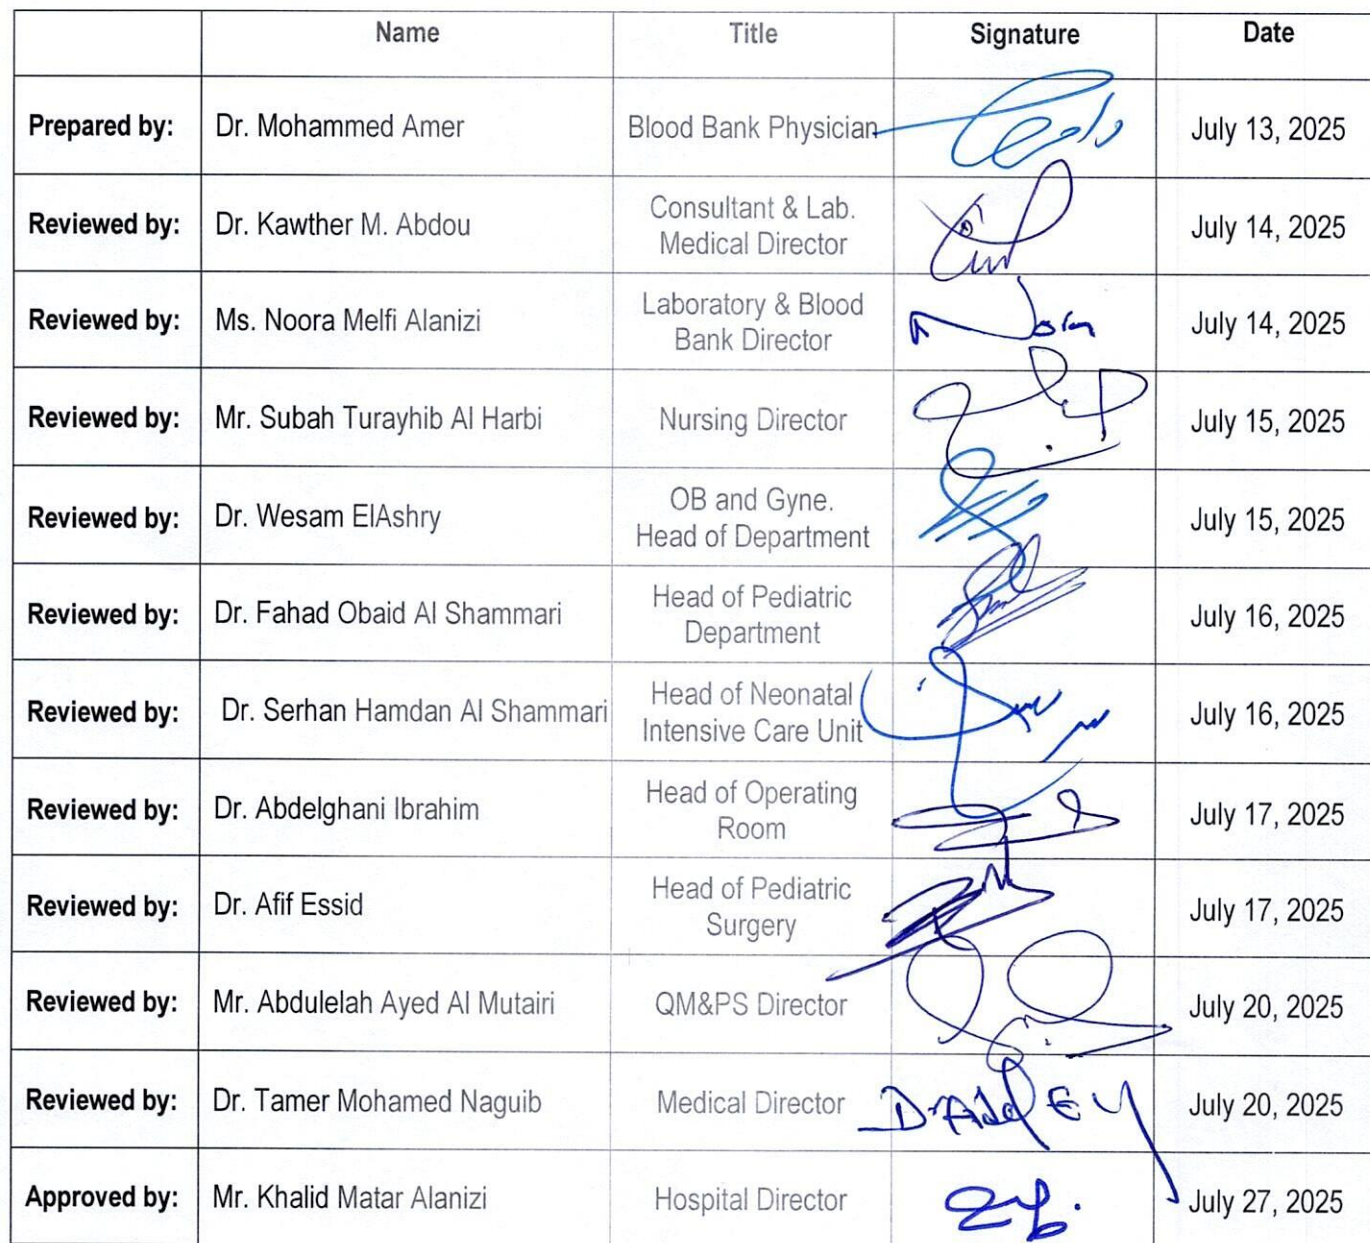 Name Title Signature Date
Prepared by: Dr. Mohammed Amer Blood Bank Physician July 13, 2025
Reviewed by: Dr. Kawther M. Abdou Consultant & Lab.
Medical Director July 14, 2025
Reviewed by: Ms. Noora Melfi Alanizi Laboratory & Blood
Bank Director July 14, 2025
Reviewed by: Mr. Subah Turayhib Al Harbi Nursing Director July 15, 2025
Reviewed by: Dr. Wesam ElAshry OB and Gyne.
Head of Department July 15, 2025
Reviewed by: Dr. Fahad Obaid Al Shammari Head of Pediatric
Department July 16, 2025
Reviewed by: Dr. Serhan Hamdan Al Shammari Head of Neonatal
Intensive Care Unit July 16, 2025
Reviewed by: Dr. Abdelghani Ibrahim Head of Operating
Room July 17, 2025
Reviewed by: Dr. Afif Essid Head of Pediatric
Surgery July 17, 2025
Reviewed by: Mr. Abdulelah Ayed Al Mutairi QM&PS Director July 20, 2025
Reviewed by: Dr. Tamer Mohamed Naguib Medical Director July 20, 2025
Approved by: Mr. Khalid Matar Alanizi Hospital Director July 27, 2025